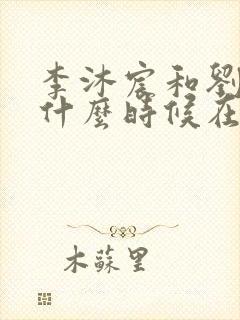 李沐宸和劉
什麼時候在
木蘇里